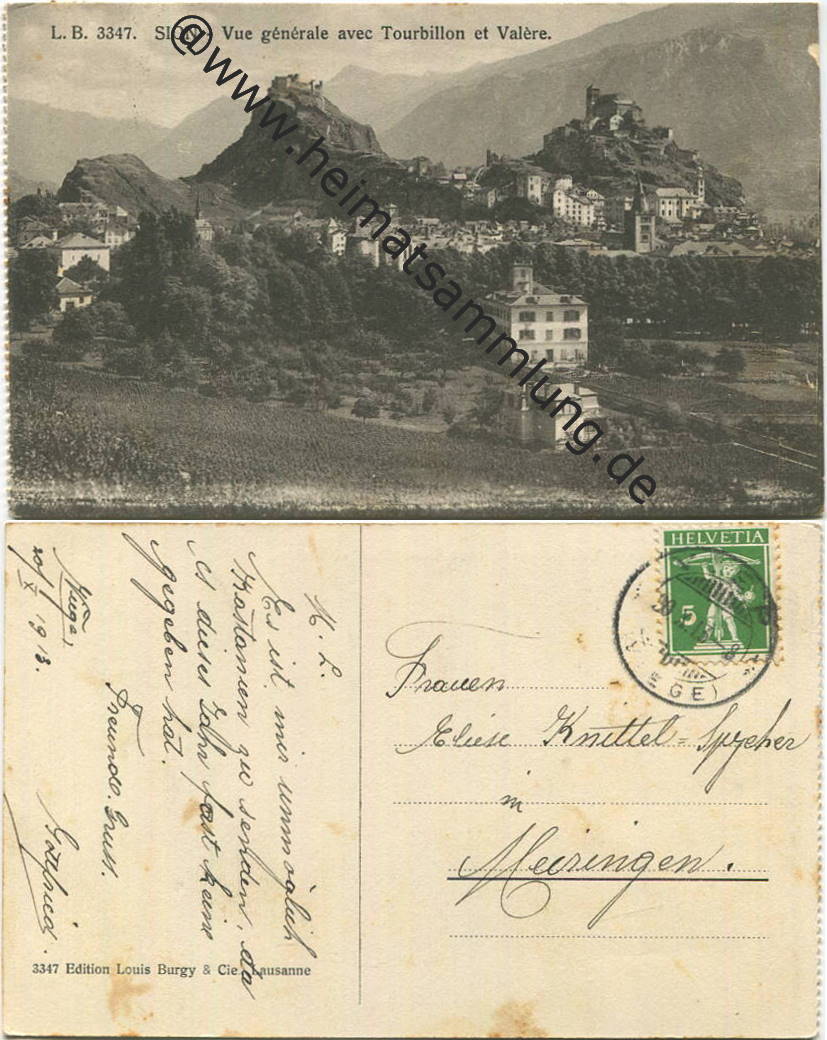 L. B. 3347. SION - Vue générale avec Tourbillon et Valère.
@www.heimatsammlung.de
HELVETIA
5
(VIEGE)
Viège,
20/X 1913.
M. L.
Es ist mir unmöglich
Kastanien zu senden, da
es dieses Jahr fast keine
gegeben hat.
Freundl. Gruss.
Gottfried.
Frauen
Eliese Knittel-Spycher
in
Meiringen.
3347 Edition Louis Burgy & Cie Lausanne